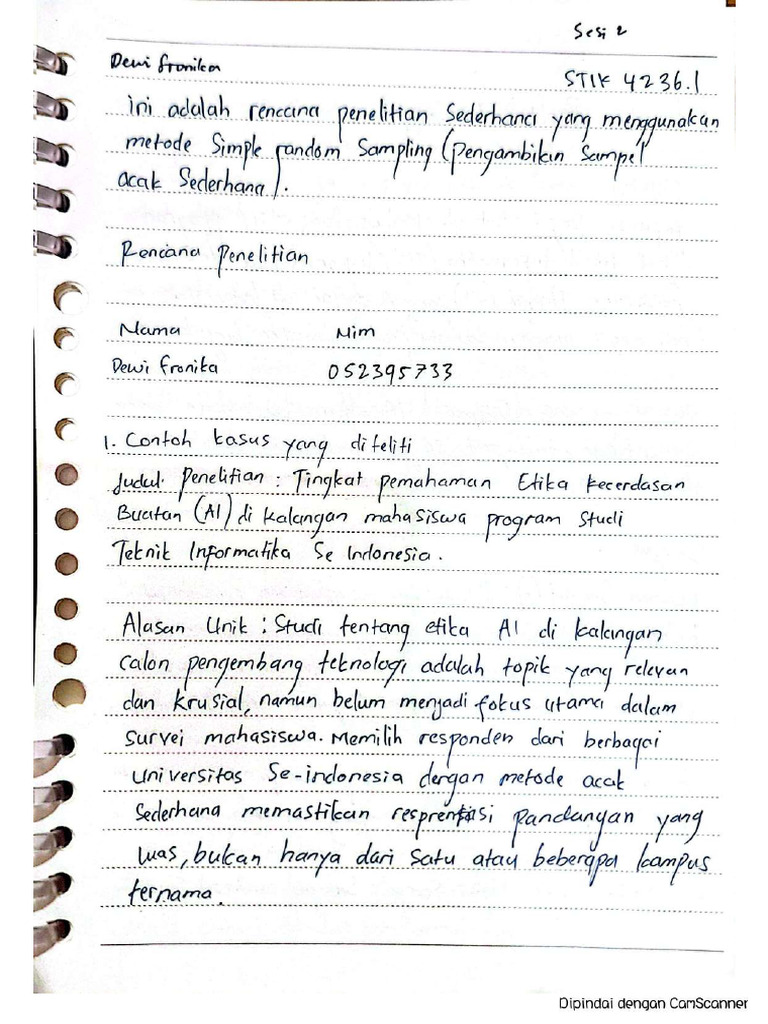 Sesi 2
Dewi fronika
STIK 4236.1
ini adalah rencana penelitian Sederhana yang menggunakan
metode Simple random Sampling (pengambilan Sampel
acak Sederhana).
Rencana Penelitian
Nama Nim
Dewi fronika 052395733
1. Contoh kasus yang diteliti
Judul penelitian : Tingkat pemahaman Etika kecerdasan
Buatan (AI) di kalangan mahasiswa program Studi
Teknik Informatika Se Indonesia.
Alasan Unik : Studi tentang etika AI di kalangan
calon pengembang teknologi adalah topik yang relevan
dan krusial, namun belum menjadi fokus utama dalam
survei mahasiswa. Memilih responden dari berbagai
universitas Se-indonesia dengan metode acak
Sederhana memastikan resprentasi pandangan yang
luas, bukan hanya dari satu atau beberapa kampus
ternama.
Dipindai dengan CamScanner